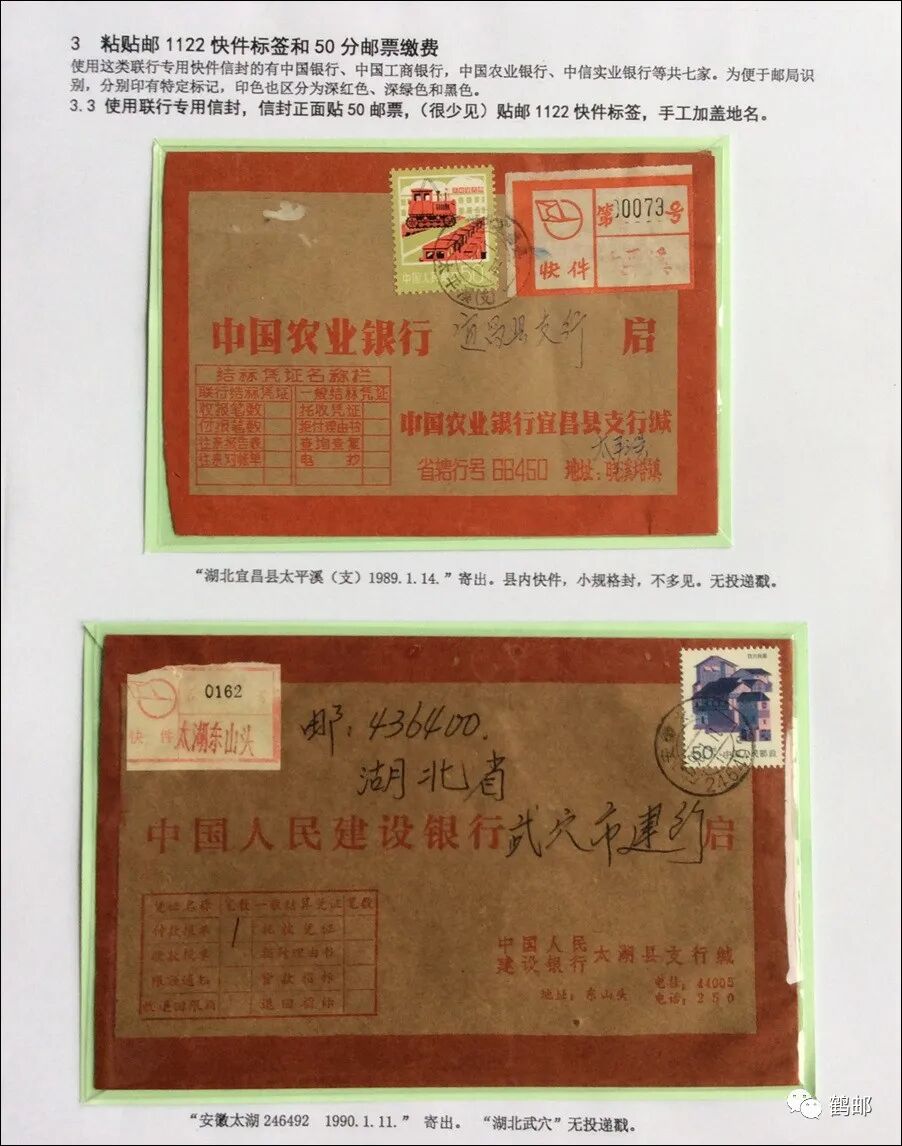 3 粘贴邮1122快件标签和50分邮票缴费
使用这类联行专用快件信封的有中国银行、中国工商银行，中国农业银行、中信实业银行等共七家。为便于邮局识
别，分别印有特定标记，印色也区分为深红色、深绿色和黑色。
3.3 使用联行专用信封，信封正面贴50邮票，（很少见）贴邮1122快件标签，手工加盖地名。
第00073号
快件
中国人民邮政 50
中国农业银行 宜昌县支行 启
结标凭证名称栏
联行结标凭证 一般结标凭证
托收凭证
付报笔数 拒付理由书
往来报告表 查询查复
往来对帐单 电 抄
中国农业银行宜昌县支行缄
太平溪
省辖行号 68450 地址：晓溪塔镇
“湖北宜昌县太平溪（支）1989.1.14.”寄出。县内快件，小规格封，不多见。无投递戳。
0162
快件 太湖东山头
50 中国人民邮政
246492
邮：436400.
湖北省
中国人民建设银行武穴市建行启
凭证名称 笔数 一般结算凭证 笔数
付款报单 1 托收凭证
收款报单 拒付理由书
贷款指标
退回指标
中国人民
建设银行 太湖县支行缄
地址：东山头 电信：44005
电话：250
“安徽太湖246492 1990.1.11.” 寄出。 “湖北武穴”无投递戳。
鹤邮